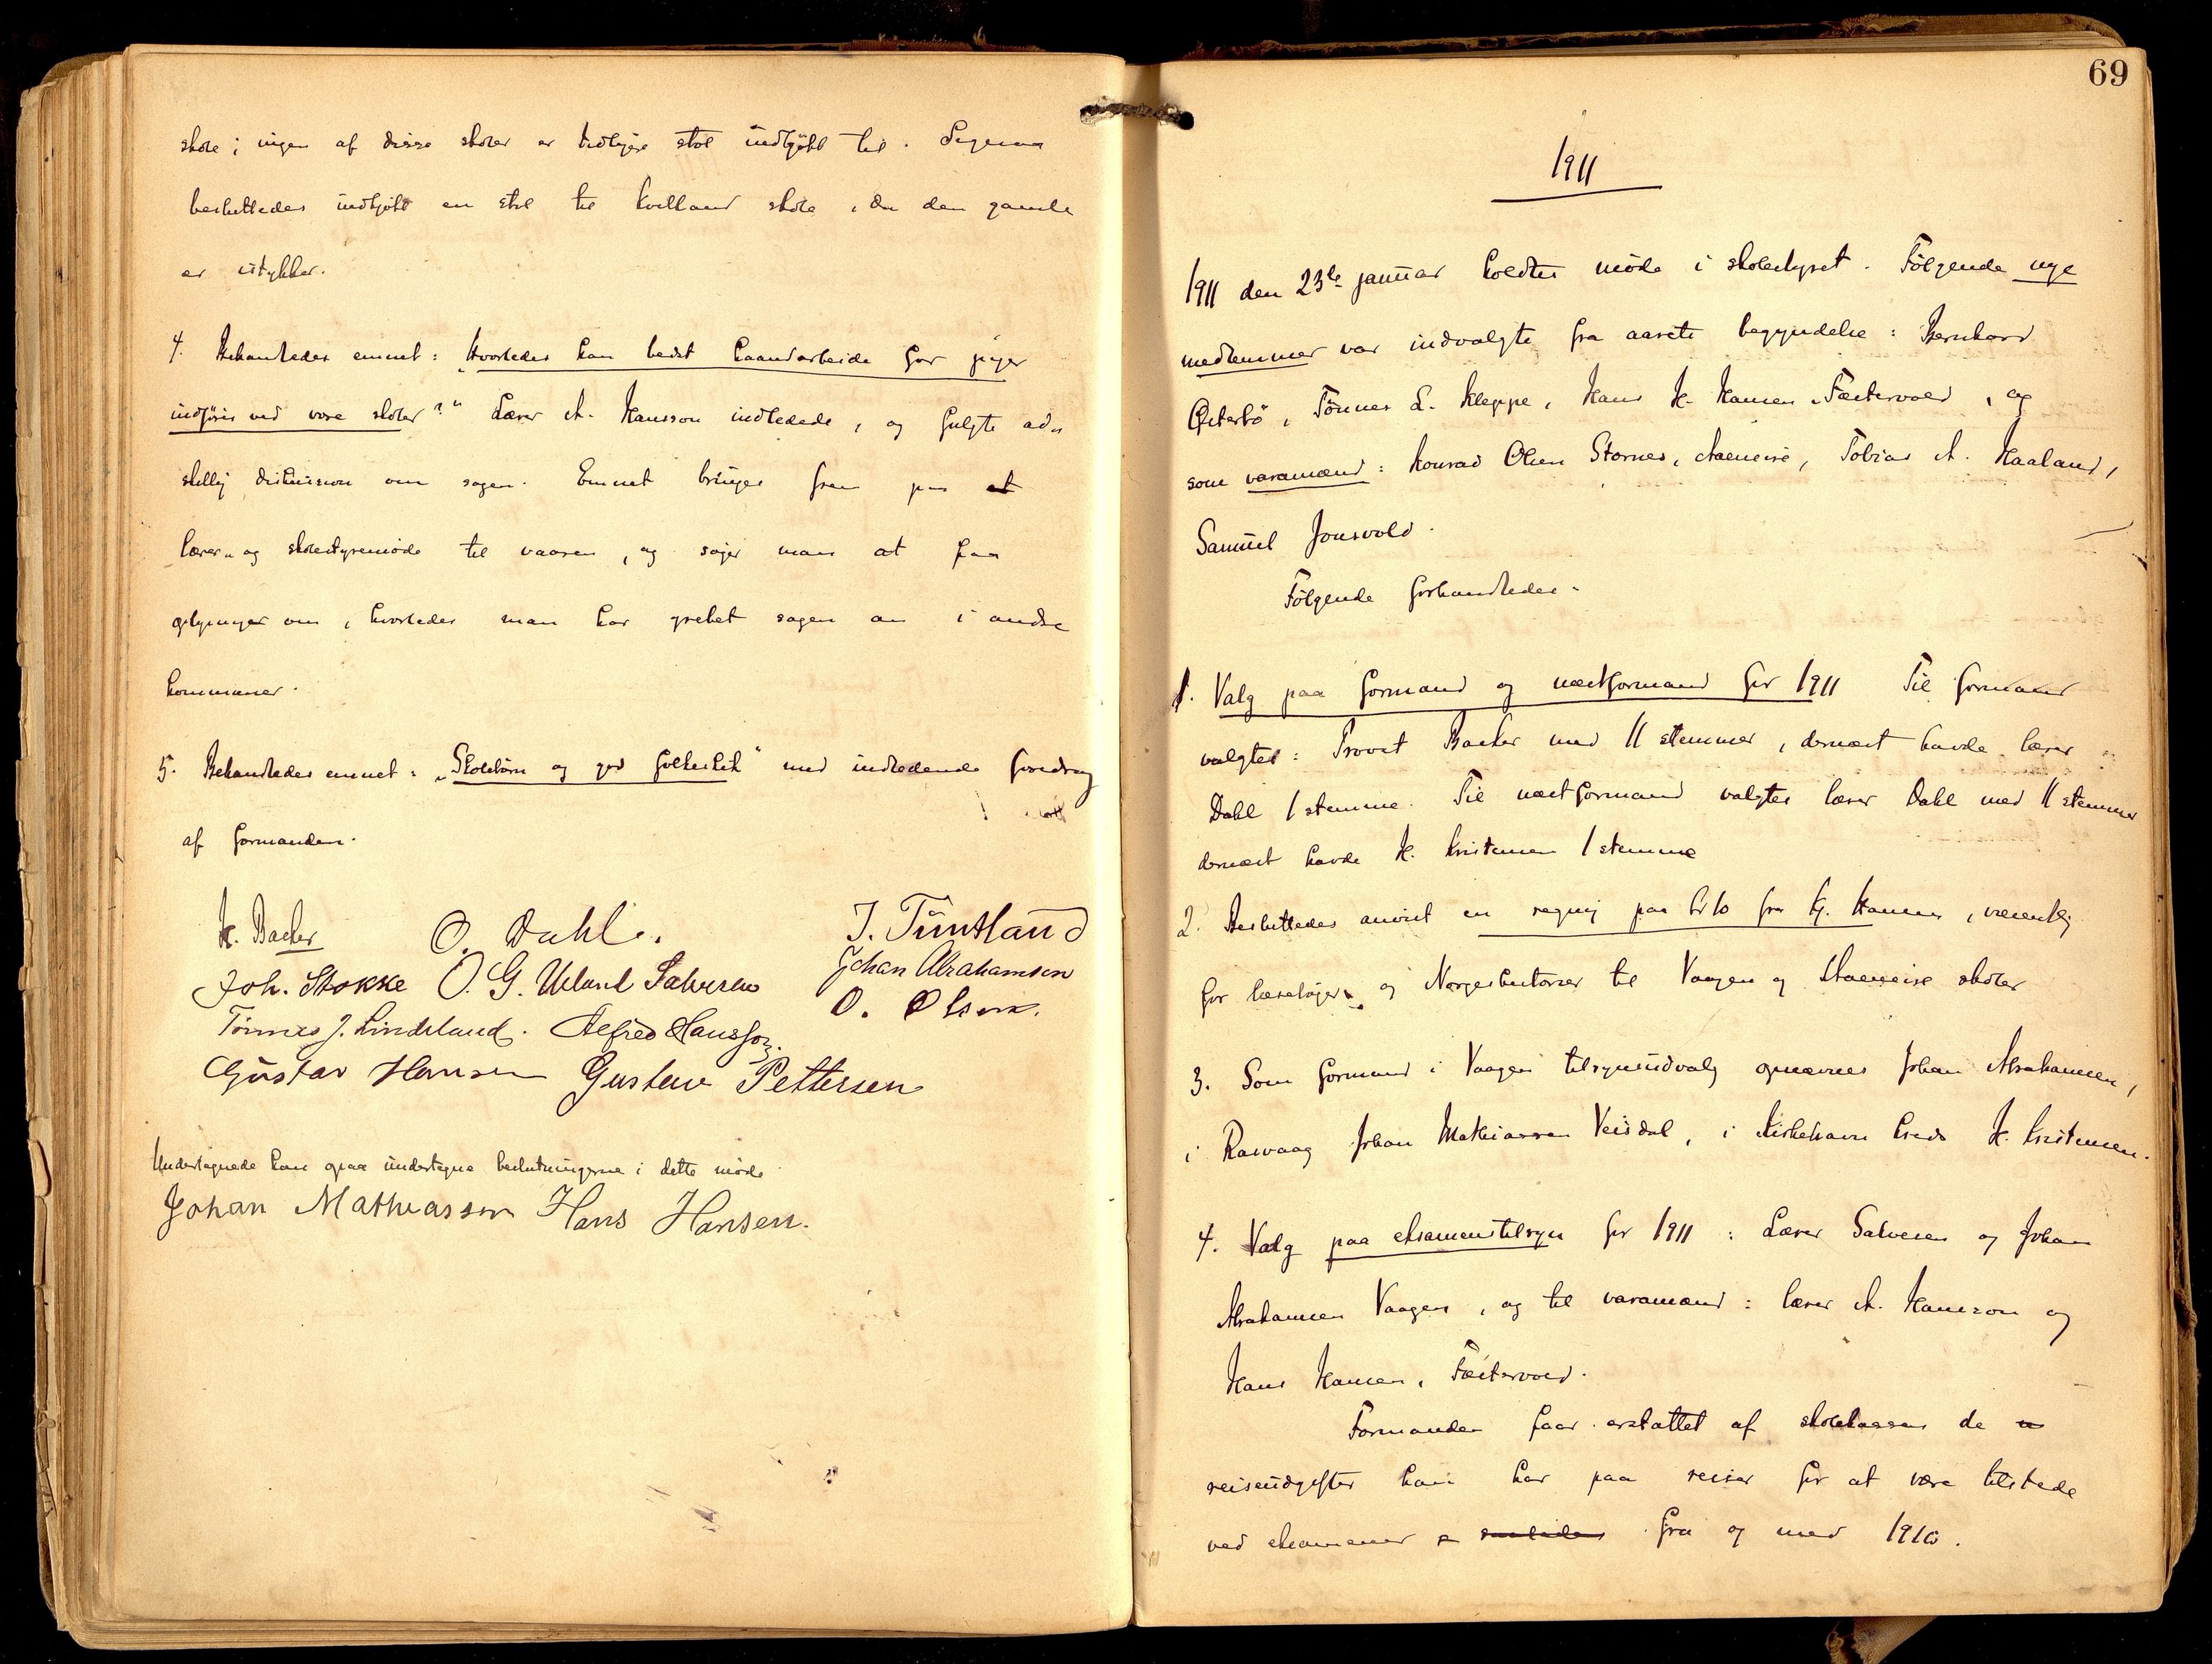 skole; ingen af disse skoler er tidligere stol indkjøbt til. Ligesaa
besluttedes indkjøbt en stol til Kvelland skole, da den gamle
er istykker.
4. Behandledes emnet: „Hvorledes kan bedst haandarbeide for piger
indføres ved vore skoler?" Lærer A. Hansson indledede, og fulgte ad-
skillig diskussion om sagen. Emnet bringes frem paa at
lærer- og skolestyremøde til vaaren, og søger man at faa
oplysninger om, hvorledes man har grebet sagen an i andre
kommuner.
5. Behandledes emnet: „Skolebørn og god folkeskik" med indledende foredrag
af formanden.
K. Barker O. Dahl. T. Tïmtland
Joh. Stokke O. G. Ueland Salvesen Johan Abrahamsen
Tönnes J. Lindeland. Alfred Hansson. O. Olsen.
Gustav Hansen Gustav Pettersen
Undertegnede kan ogsaa undertegne beslutningerne i dette møde
Johan Mathiassen Hans Hansen.
69
1911
1911 den 23de januar holdtes møde i skolestyret. Følgende nye
medlemmer var indvalgte fra aarets begyndelse: Bernhard
Østerbö, Tönnes L. Kleppe, Hans K. Hansen Fæstervold, og
som varamænd: Konrad Olsen Stornes, Tobias A. Haaland,
Samuel Jonsvold.
Følgende forhandledes.
1. Valg paa formand og næstformand for 1911 Til formand
valgtes: Provst Barker med 11 stemmer, dernæst havde lærer
Dahl 1 stemme. Til næstformand valgtes lærer Dahl med 11 stemmer
dernæst havde K. Kristensen 1 stemme
2. Besluttedes anvist en regning paa kr 10 fra G. Hansen, væsentlig
for læsebøger og Norgeshistorier til Vaagen og skoler
3. Som formand i Vaagen tilsynsudvalg opnævnes Johan Abrahamsen,
i Rasvaag Johan Mathiassen Veisdal, i Kirkehavn kreds K. Kristensen.
4. Valg paa eksamenstilsyn for 1911: Lærer Salvesen og Johan
Abrahamsen Vaagen, og til varamænd: lærer A. Hansson og
Hans Hansen, Fæstervold.
Formanden faar erstattet af skolekassen de
reiseudgifter han har paa reiser for at være tilstede
ved eksamener fra og med 1910.